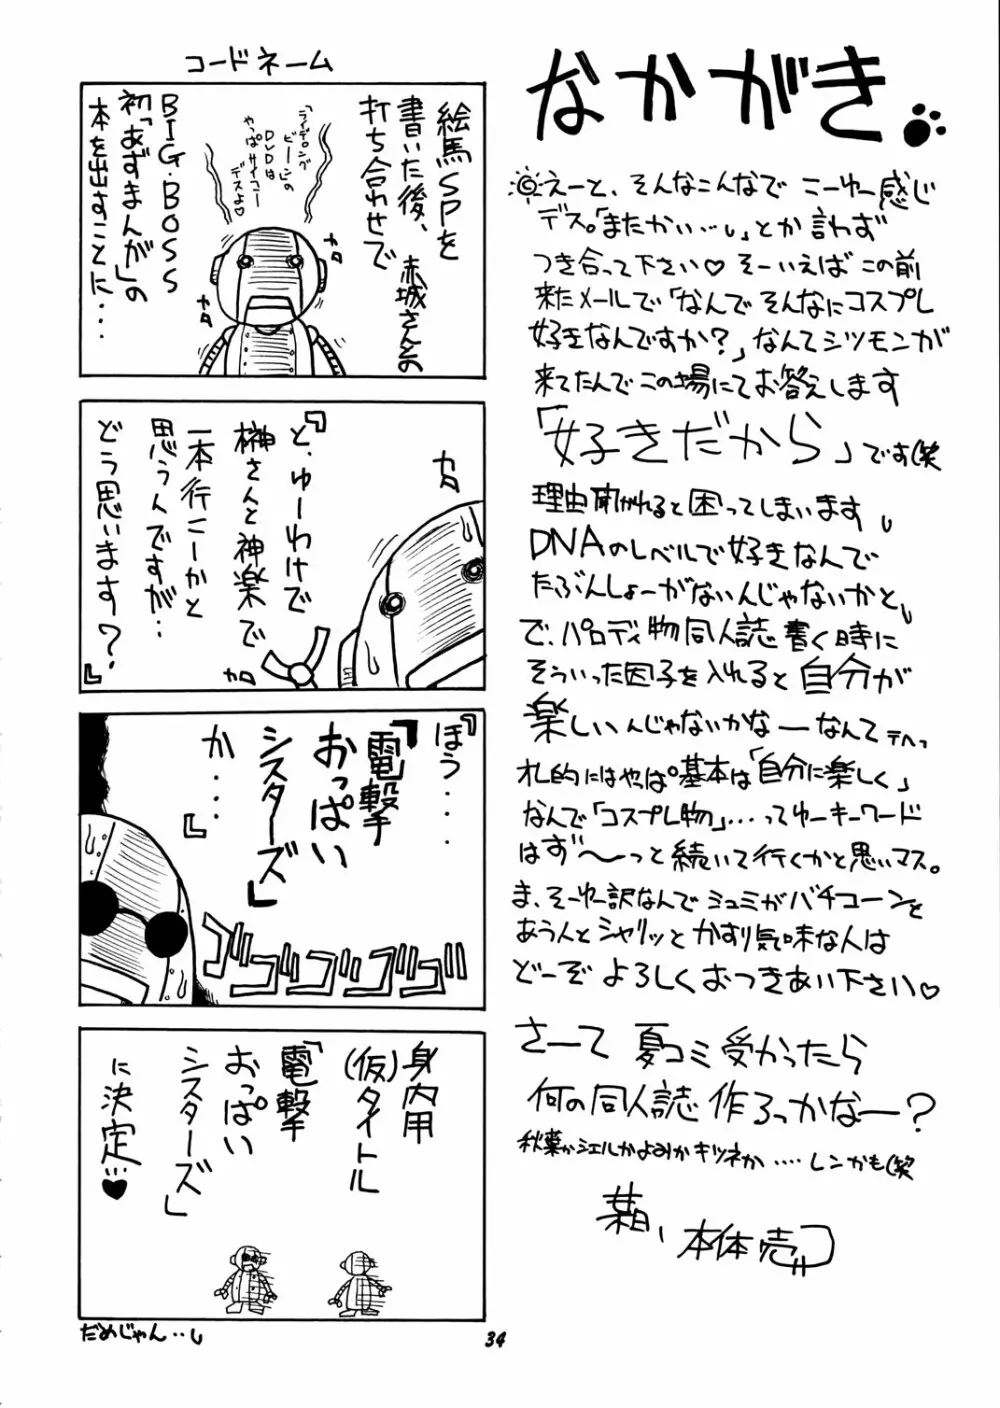 なかがき
えーと、そんなこんなで こーゆー感じ
デス。「またかい…」とか言わず
つき合って下さい♡ そーいえば この前
来たメールで「なんで そんなにコスプレ
好きなんですか?」なんてシツモンが
来てたんで この場にてお答えします
「好きだから」です(笑
理由聞かれると困ってしまいます
DNAのレベルで好きなんで
たぶんしょーがないんじゃないかと
で、パロディ物同人誌書く時に
そういった因子を入れると自分が
楽しいんじゃないかなーなんて テヘッ
私的にはやっぱ基本は「自分に楽しく」
なんで「コスプレ物」…ってゆーキーワード
はず〜っと続いて行くかと思いマス。
ま、そーゆー訳なんで シュミがバチコーンと
あう人とシャリッとかすり気味な人は
どーぞ よろしくおつきあい下さい♡
さーて 夏コミ受かったら
何の同人誌 作ろっかなー?
秋葉かシエルかよみかキツネか‥‥レンかも(笑
本体売
コードネーム
絵馬SPを
書いた後、赤城さんとの
打ち合わせで
「ライデロング
ビーン」の
DVDは
やっぱサイコー
デスよ♡
BIG・BOSS
初「あずまんが」の
本を出すことに‥‥
カロ
カロ
『と、ゆーわけで
榊さんと神楽で
一本行こーかと
思うんですが‥
どう思います?』
カロ
カロ
『ほう‥‥
「電撃
おっぱい
シスターズ」
か‥‥』
ゴゴゴゴゴ
身内用
(仮)タイトル
「電撃
おっぱい
シスターズ」
に決定!!♥
だめじゃん‥
34